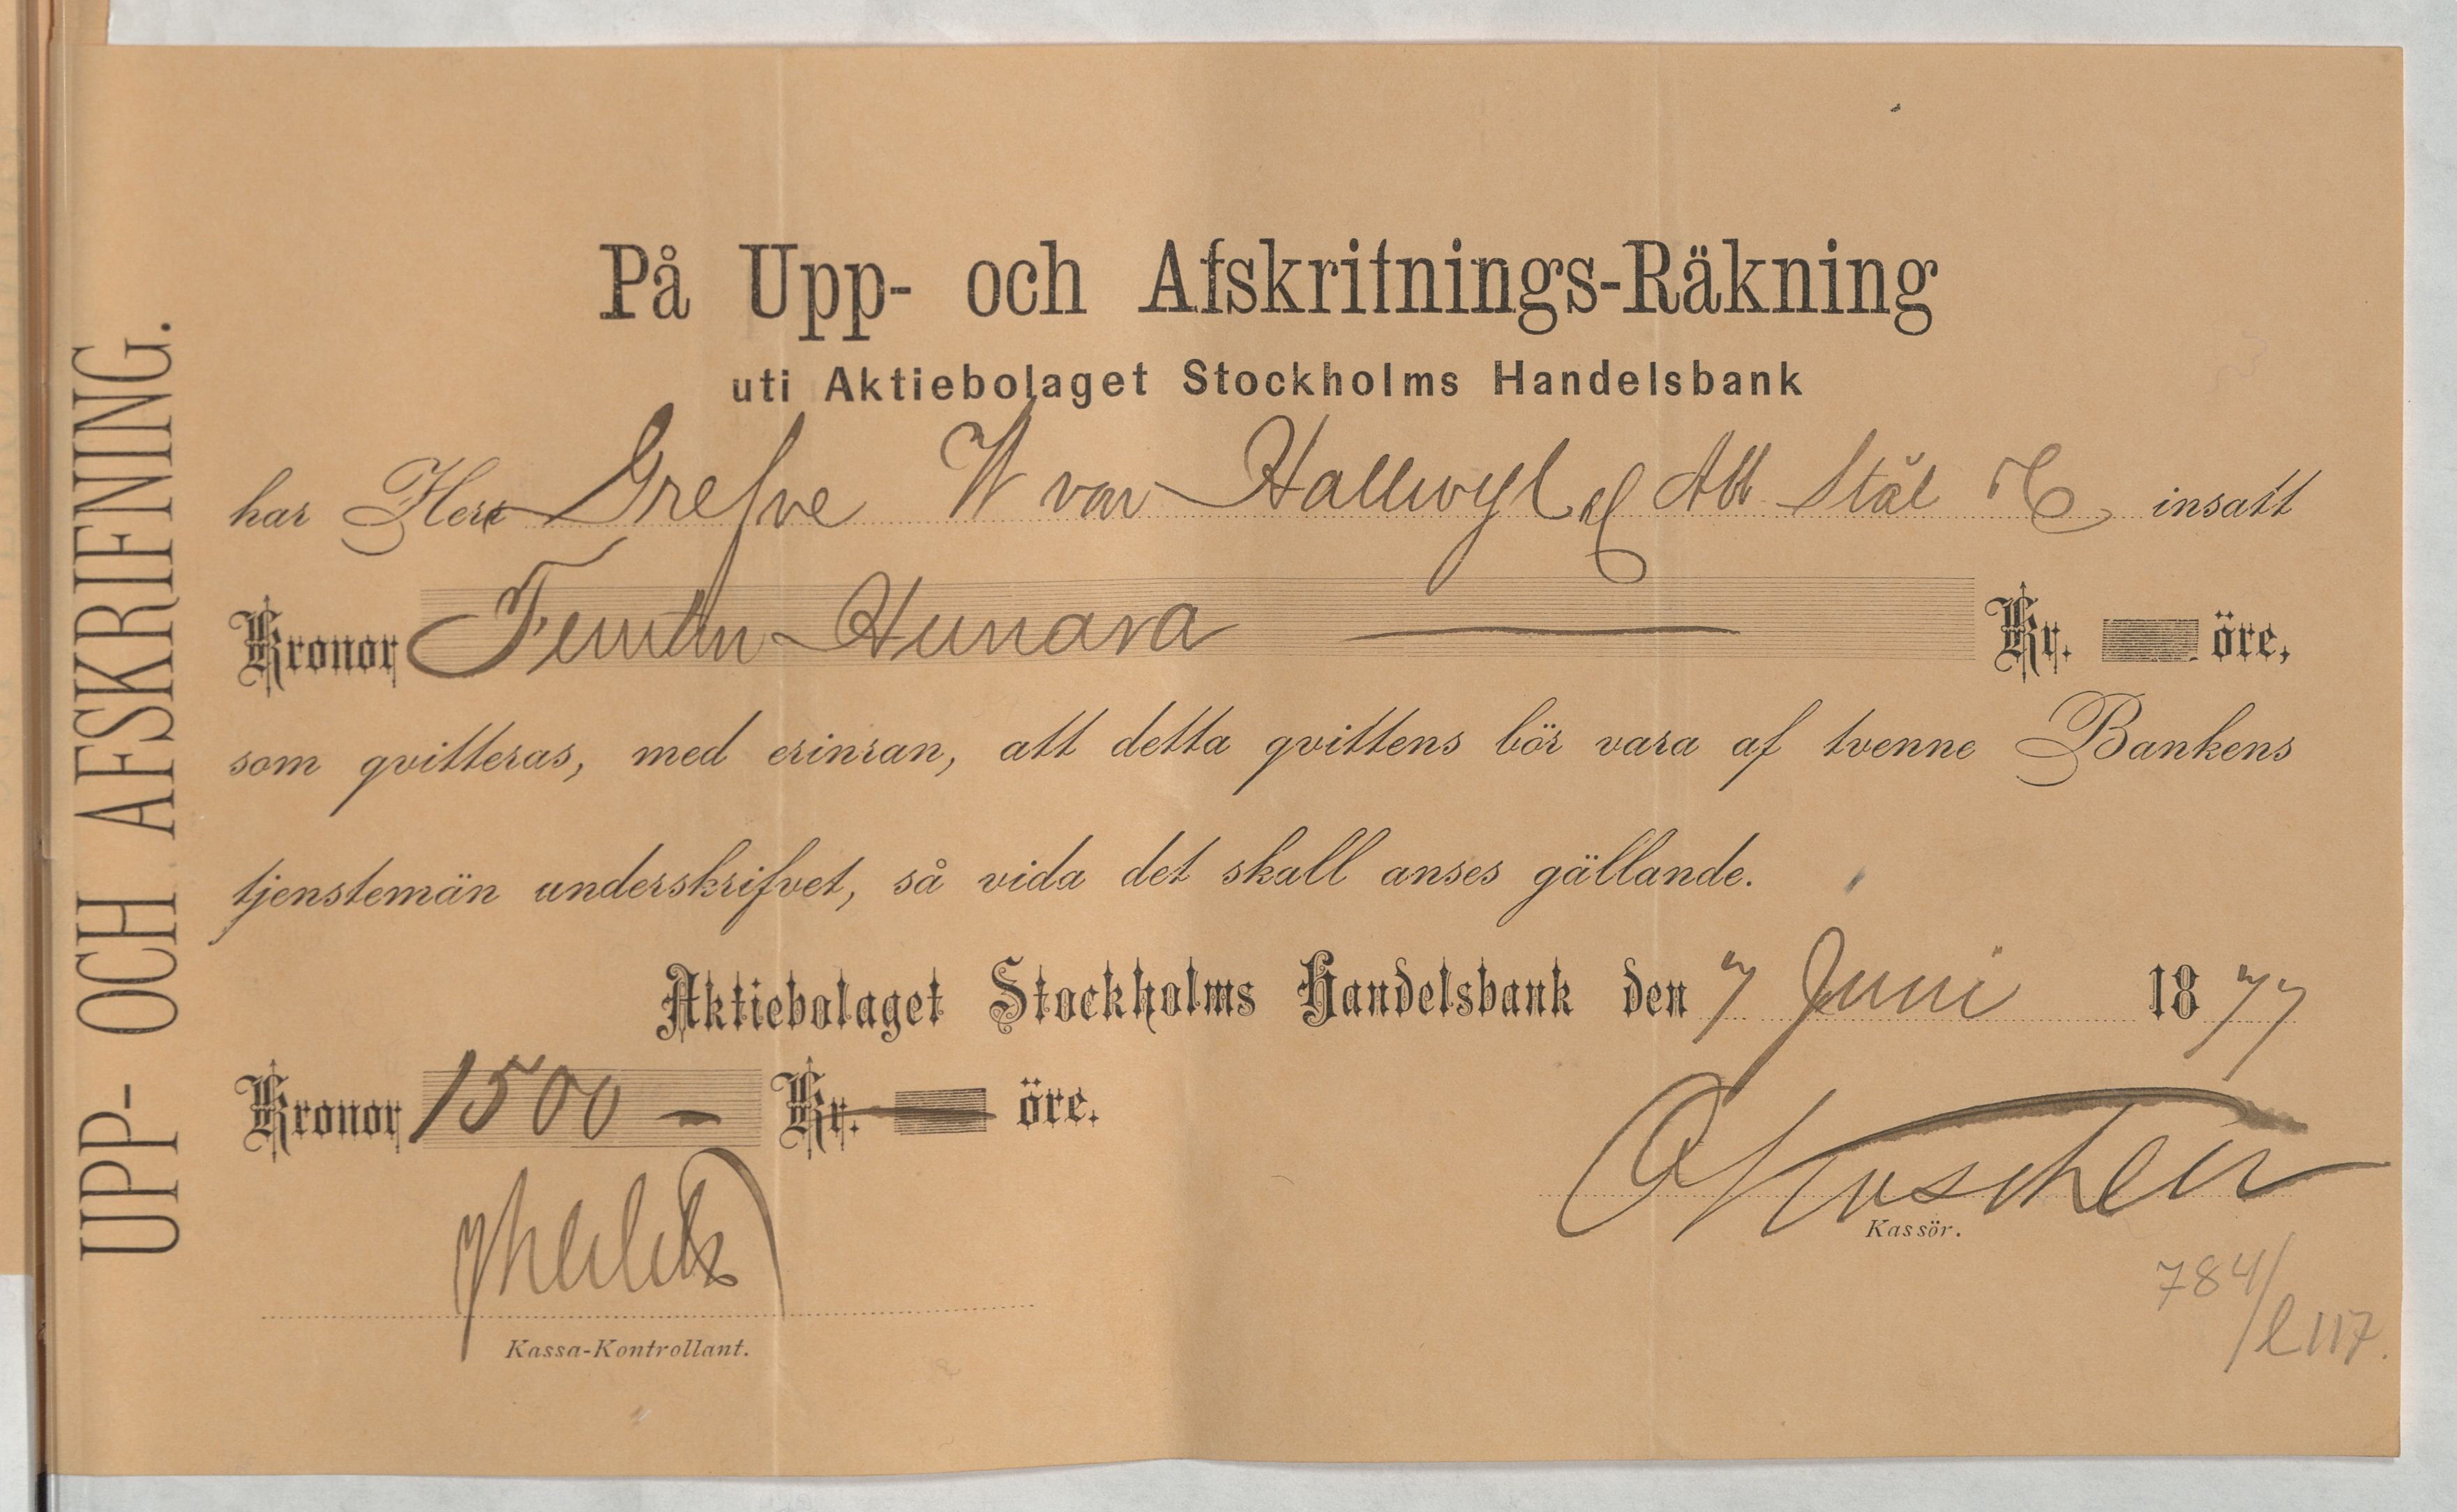 UPP- OCH AFSKRIFNING.
På Upp- och Afskrifnings-Räkning
uti Aktiebolaget Stockholms Handelsbank
har Herr Grefve W von Hallwyl Att Stål insatt
Kronor Femton Hundra Kr. öre,
som qvitteras, med erinran, att detta qvittens bör vara af tvenne Bankens
tjenstemän underskrifvet, så vida det skall anses gällande.
Aktiebolaget Stockholms Handelsbank den 7 Juni 1877
Kronor 1500 – Kr. öre.
Kassör.
Kassa-Kontrollant.
784/
l 117.